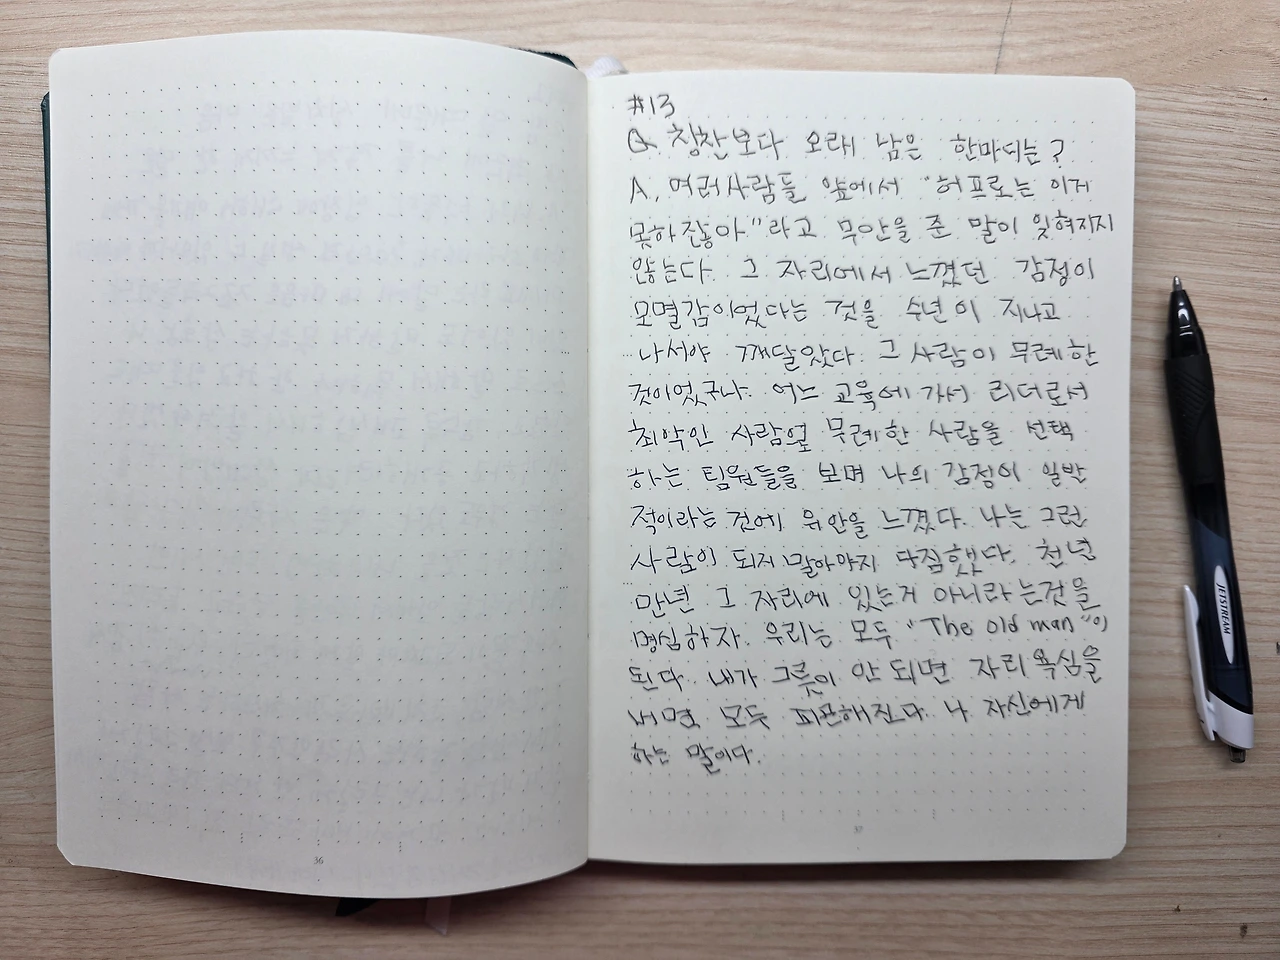 #13
Q. 칭찬보다 오래 남은 한마디는?
A. 여러사람들 앞에서 "허프로는 이게
못하잖아"라고 무안을 준 말이 잊혀지지
않는다. 그 자리에서 느꼈던 감정이
모멸감이었다는 것을 수년이 지나고
나서야 깨달았다. 그 사람이 무례한
것이었구나. 어느 교육에 가서 리더로서
최악인 사람으로 무례한 사람을 선택
하는 팀원들을 보며 나의 감정이 일반
적이라는 것에 위안을 느꼈다. 나는 그런
사람이 되지 말아야지 다짐했다. 천년
만년 그 자리에 있는거 아니라는것을
명심하자. 우리는 모두 "The old man"이
된다. 내가 그릇이 안 되면 자리 욕심을
내면 모두 피곤해진다. 나 자신에게
하는 말이다.
36
37
JETSTREAM